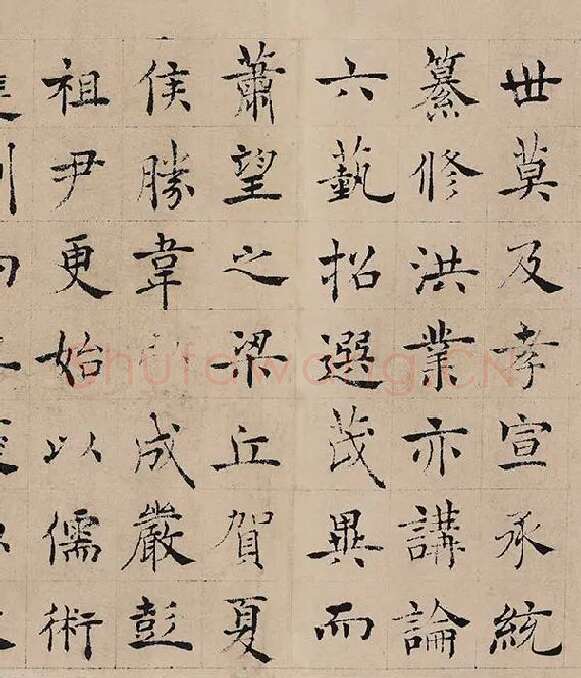 世莫及孝宣承統
纂修洪業亦講論
六藝招選茂異而
蕭望之梁丘賀夏
侯勝韋玄成嚴彭
祖尹更始以儒術
Shufawang.CN